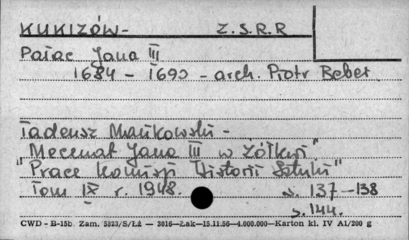 KUKIZÓW- Z.S.R.R
Pałac Jana III
1684 - 1690 - arch. Piotr Beber
Tadeusz Mańkowski -
Mecenat Jana III w Żółkwi"
"Prace Komisji Historii Sztuki"
Tom IX r. 1948. s. 137-138
s. 144.
CWD - B-15b. Zam. 5823/S/Łż — 3016—Łak—15.11.56—4.000.000—Karton kl. IV A1/200 g